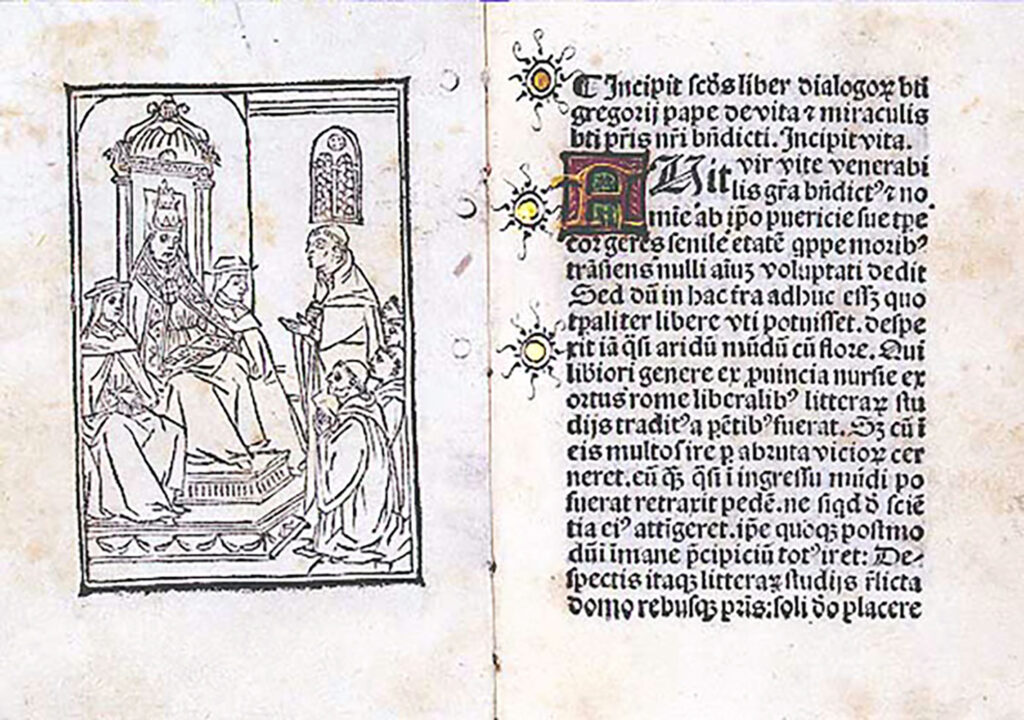 ¶ Incipit scḋs liber dialogoꝝ bti
gregorij pape de vita ⁊ miraculis
bti pr̄is nr̄i bn̄dicti. Incipit vita.
Uit vir vite venerabi
lis gr̄a bn̄dictꝰ ⁊ no.
mine ab ip̄o puericie sue tp̄e
cor gerēs senile etatē q̄ppe moribꝰ
trāsiens nulli aīuꝫ voluptati dedit
Sed dū in hac tr̄a adhuc essꝫ quo
tp̄aliter libere vti potuisset. despe
xit iā q̄si aridū mūdū cū flore. Qui
libiori genere ex ꝓuincia nursie ex
ortus rome liberalibꝰ litteraꝝ stu
dijs traditꝰ a pētibꝰ fuerat. Sꝫ cū ī
eis multos ire ꝑ abruta vicioꝝ cer
neret. eū qꝫ q̄si ī ingressu mūdi po
suerat retraxit pedē. ne siqd d̄ sciē
tia eiꝰ attigeret. ip̄e quoqꝫ postmo
dū ī mane p̄cipiciū totꝰ iret: De-
spectis itaqꝫ litteraꝝ studijs r̄licta
domo rebusqꝫ pr̄is: soli d̄o placere